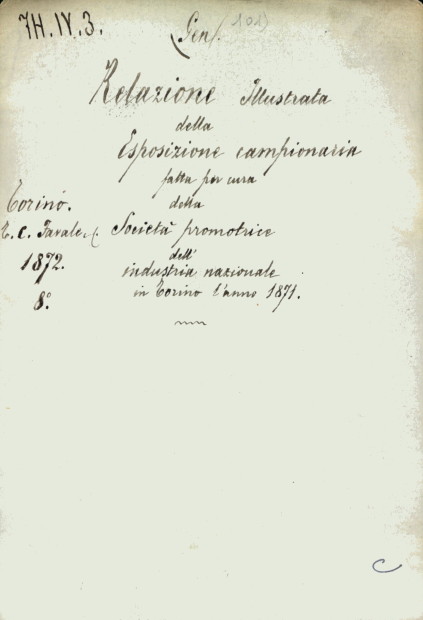 7H.IV.3.
(Gen). (101)
Relazione Illustrata
della
Esposizione campionaria
fatta per cura
della
Torino.
T. C. Favale, C. Società promotrice
dell'
1872. industria nazionale
in Torino l'anno 1871.
8°
C